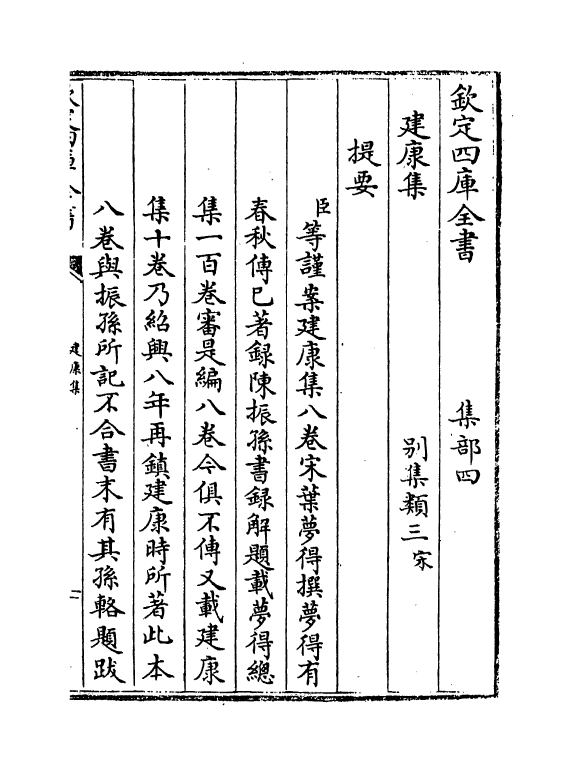 欽定四庫全書　集部四
建康集　別集類三宋
提要
臣等謹案建康集八卷宋葉夢得撰夢得有
春秋傳已著録陳振孫書録解題載夢得總
集一百卷審是編八卷今俱不傳又載建康
集十卷乃紹興八年再鎮建康時所著此本
八卷與振孫所記不合書末有其孫輅題跋
建康集